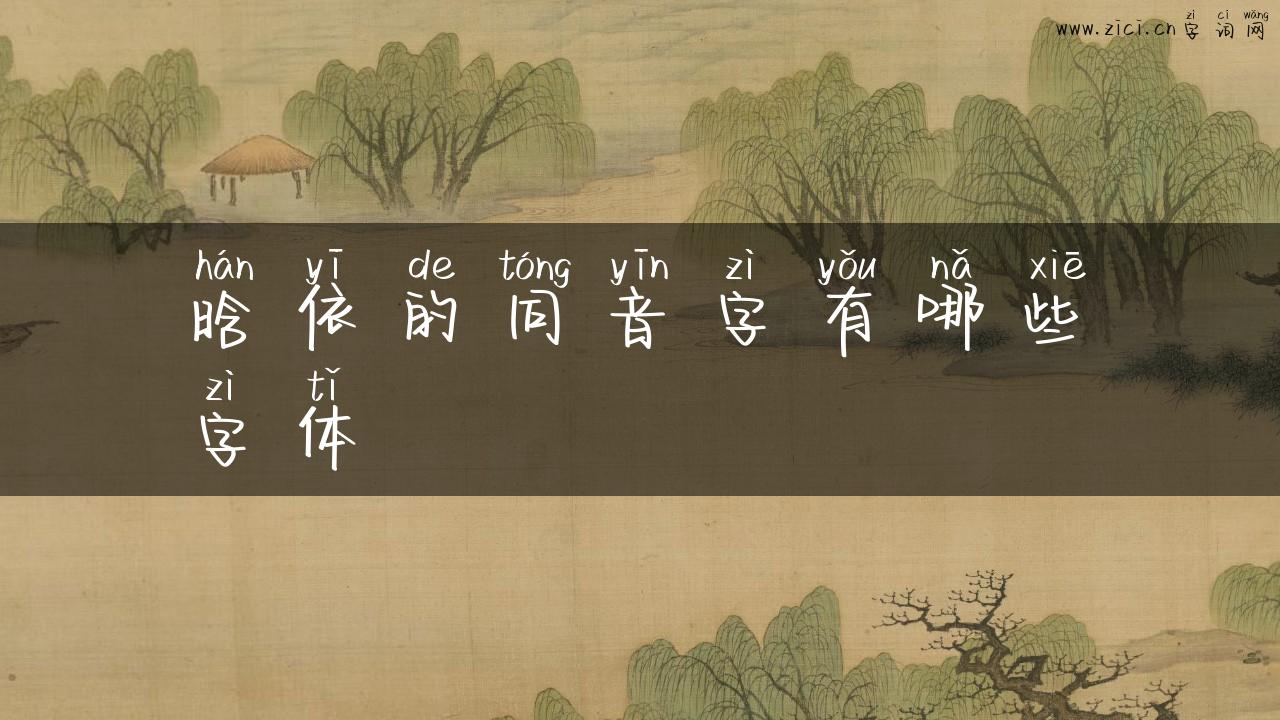 zì cí wǎng
www.zici.cn 字词网
hán yī de tóng yīn zì yǒu nǎ xiē
晗依的同音字有哪些
zì tǐ
字体